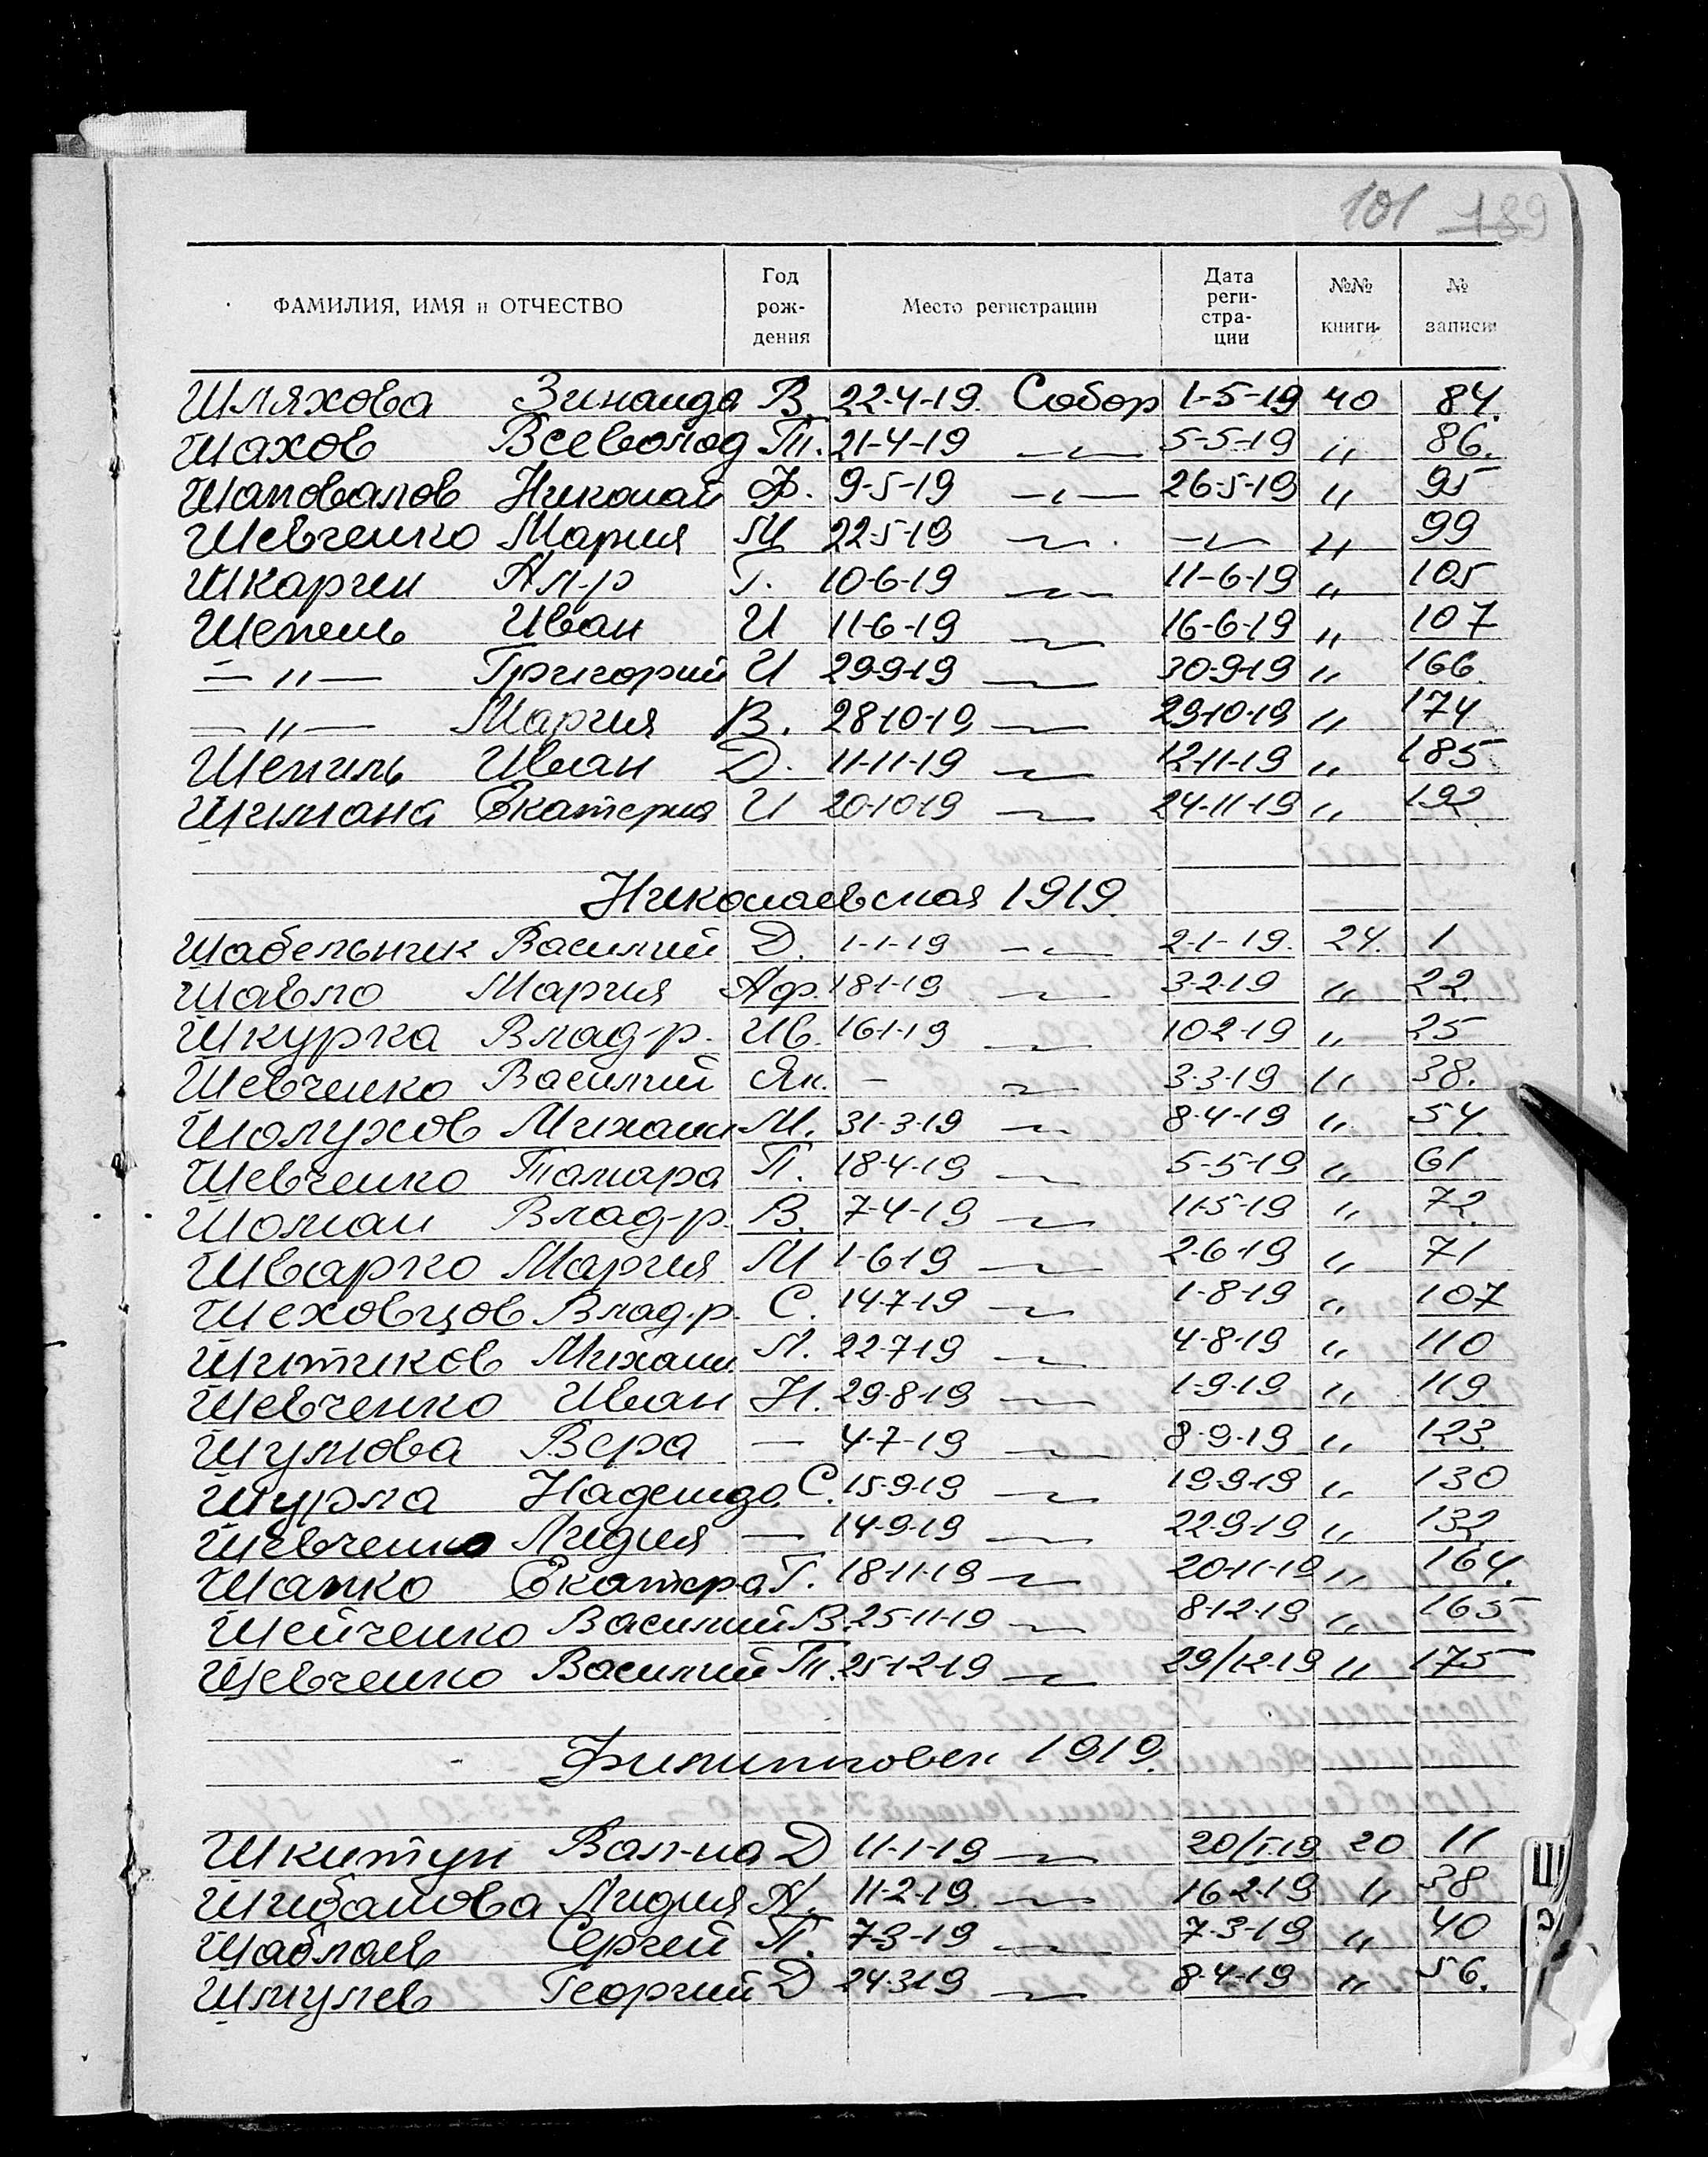 101 189
ФАМИЛИЯ, ИМЯ и ОТЧЕСТВО Год рож- дения Место регистрации Дата реги- стра- ции №№ книги №  записи
Шляхова Зинаида В. 22-4-19. Собор 1-5-19 40 84.
Шахов Всеволод Т. 21-4-19 —〃— 5-5-19 〃 86.
Шаповалов Николай Ф. 9-5-19 —〃— 26-5-19 〃 95
Шевченко Мария М 22-5-19 —〃— —〃— 〃 99
Шкарчен Ал-р Г. 10-6-19 —〃— 11-6-19 〃 105
Шепель Иван И 11-6-19 —〃— 16-6-19 〃 107
—〃— Григорий И 29-9-19 —〃— 30-9-19 〃 166
—〃— Мария В. 28-10-19 —〃— 29-10-19 〃 174
Шепиль Иван Д. 11-11-19 —〃— 12-11-19 〃 185
Екатерина И 20-10-19 —〃— 24-11-19 〃 192
Николаевская 1919.
Шабельник Василий Д. 1-1-19 —〃— 2-1-19. 24. 1
Шавло Мария Аф. 18-1-19 —〃— 3-2-19 〃 22
Шкурка Влад-р. Ив. 16-1-19 —〃— 10-2-19 〃 25
Шевченко Василий Як. — —〃— 3-3-19 〃 38.
Шолухов Михаил М. 31-3-19 —〃— 8-4-19 〃 54.
Шевченко Тамара П. 18-4-19 —〃— 5-5-19 〃 61
Шоман Влад-р. В. 7-4-19 —〃— 11-5-19 〃 72
Шварко Мария М 1-6-19 —〃— 2-6-19 〃 71
Шеховцов Влад-р. С. 14-7-19 —〃— 1-8-19 〃 107
Шитиков Михаил П. 22-7-19 —〃— 4-8-19 〃 110
Шевченко Иван Н. 29-8-19 —〃— 1-9-19 〃 119
Шумова Вера — 4-7-19 —〃— 8-9-19 〃 123
Шурла Надежда С. 15-9-19 —〃— 19-9-19 〃 130
Шевченко Лидия — 14-9-19 —〃— 22-9-19 〃 132
Шапко Екатер-а Г. 18-11-19 —〃— 20-11-19 〃 164.
Шейченко Василий В. 25-11-19 —〃— 8-12-19 〃 165
Шевченко Василий Т. 25-12-19 —〃— 29/12-19 〃 175
Филипповск 1919.
Шкитун Вал-на Д 11-1-19 —〃— 20/1-19 20 11
Шибалова Лидия Н. 11-2-19. —〃— 16-2-19 〃 38
Шаблаев Сергей П. 7-3-19 —〃— 7-3-19 〃 40
Шмулев Георгий Д 24-3-19 —〃— 8-4-19 〃 56.